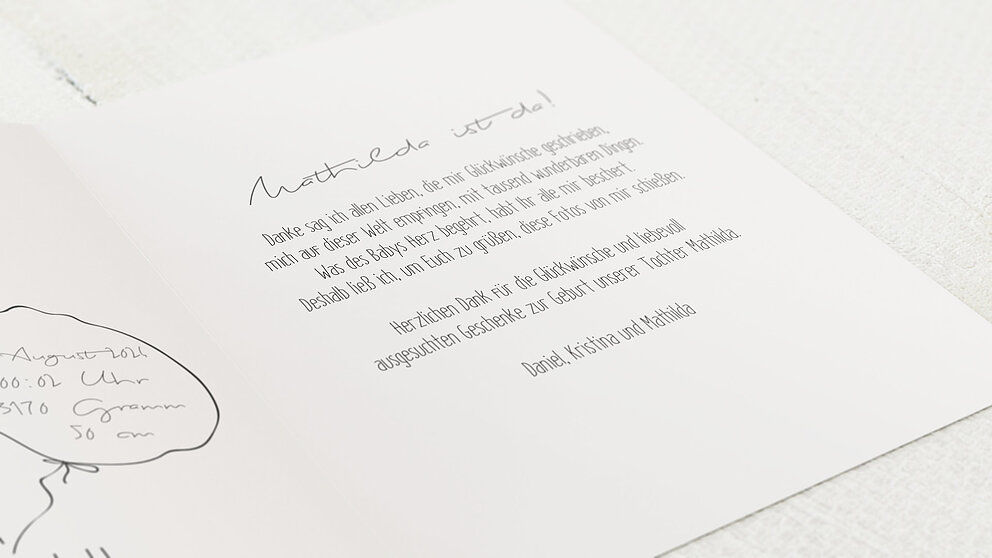 August 2026
00:02 Uhr
3170 Gramm
50 cm
Mathilda ist da!
Danke sag ich allen Lieben, die mir Glückwünsche geschrieben,
mich auf dieser Welt empfingen, mit tausend wunderbaren Dingen.
Was des Babys Herz begehrt, habt Ihr alle mir beschert.
Deshalb ließ ich, um Euch zu grüßen, diese Fotos von mir schießen.
Herzlichen Dank für die Glückwünsche und liebevoll
ausgesuchten Geschenke zur Geburt unserer Tochter Mathilda.
Daniel, Kristina und Mathilda